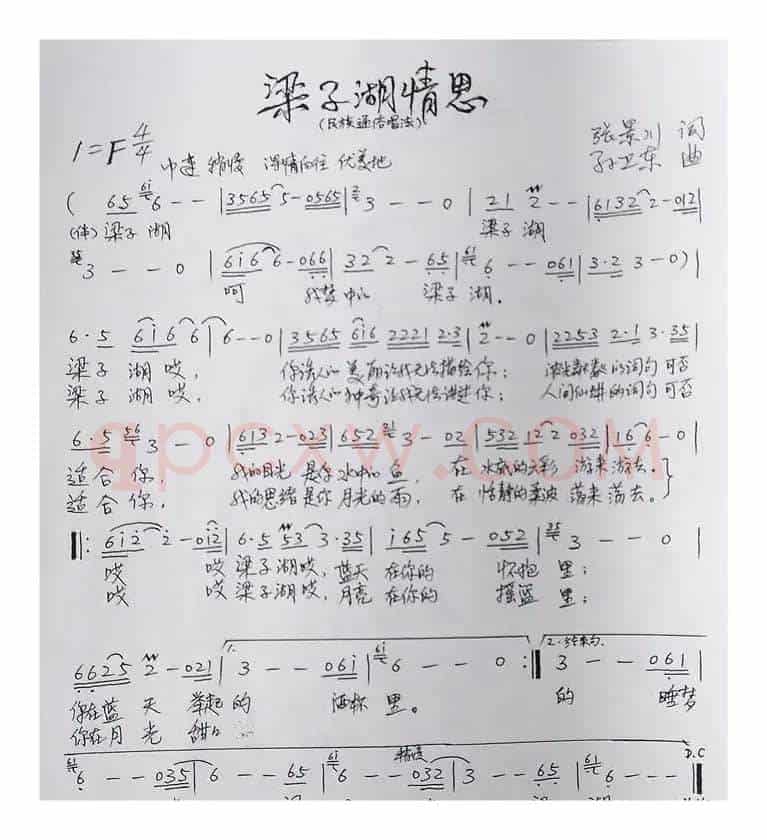 梁子湖情思
(民族通俗唱法)
1=F 4/4 中速 稍慢 深情向往 优美地
张景川 词
孙卫东 曲
( 65 6 - - | 3565 5 - 0565 | 3 - - 0 | 21 2 - - | 6132 2 - 012 |
(伴)梁子湖 梁子湖
3 - - 0 | 6i6 6 - 066 | 32 2 - 65 | 6 - - 061 | 3·2 3 - 0 ) |
呵 我梦中的 梁子湖.
6·5 6i6 6 | 6 - - 0 | 3565 6i6 2221 2·3 | 2 - - 0 | 2253 2·1 3·35 |
梁子湖哎, 你诱人的美丽让我无法描绘你; 的词句可否
梁子湖哎, 你诱人的神奇让我无法讲述你; 人间仙境的词句可否
6·5 3 - 0 | 613 2 - 023 | 652 3 - 02 | 532 12 2 032 | 16 6 - 0 |
适合你, 我的目光是你水中的鱼, 在水底的 游来游去.
适合你. 我的思绪是你月光的雨, 在恬静的柔波荡来荡去.
‖: 6i2 2 - 0i2 | 6·5 53 3·35 | i65 5 - 052 | 3 - - 0 |
哎 哎梁子湖哎, 蓝天在你的怀抱里;
哎 哎梁子湖哎, 月亮在你的摇篮里;
6625 2 - 021 | 1. 3 - - 06i | 6 - - 0 :‖ 2.结束句. 3 - - 061 |
你在蓝天举起的 酒杯里。 的 睡梦
你在月光甜
6 - - 035 | 6 - - 65 | 6 - - 032 | 3 - - 65 | 6 - - - ‖
稍慢
D.C
qpcxw.COM